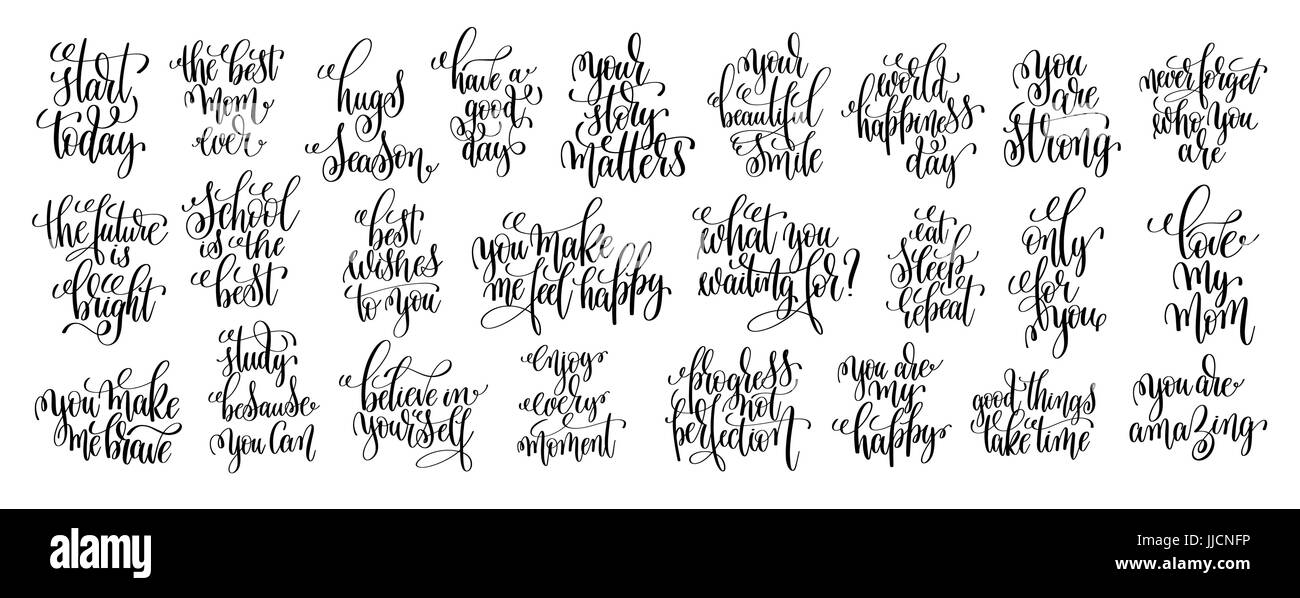 start
today
the best
mom
ever
hugs
season
have a
good
day
your
story
matters
your
beautiful
smile
world
happiness
day
you
are
strong
never forget
who you
are
the future
is
bright
school
is the
best
best
wishes
to you
you make
me feel happy
what you
waiting for?
eat
sleep
repeat
only
for
you
love
my
mom
you make
me brave
study
besause
you can
believe in
yourself
enjoy
every
moment
progress
not
perfection
you are
my
happy
good things
take time
you are
amazing
alamy stock photo
alamy
Image ID: JJCNFP
www.alamy.com